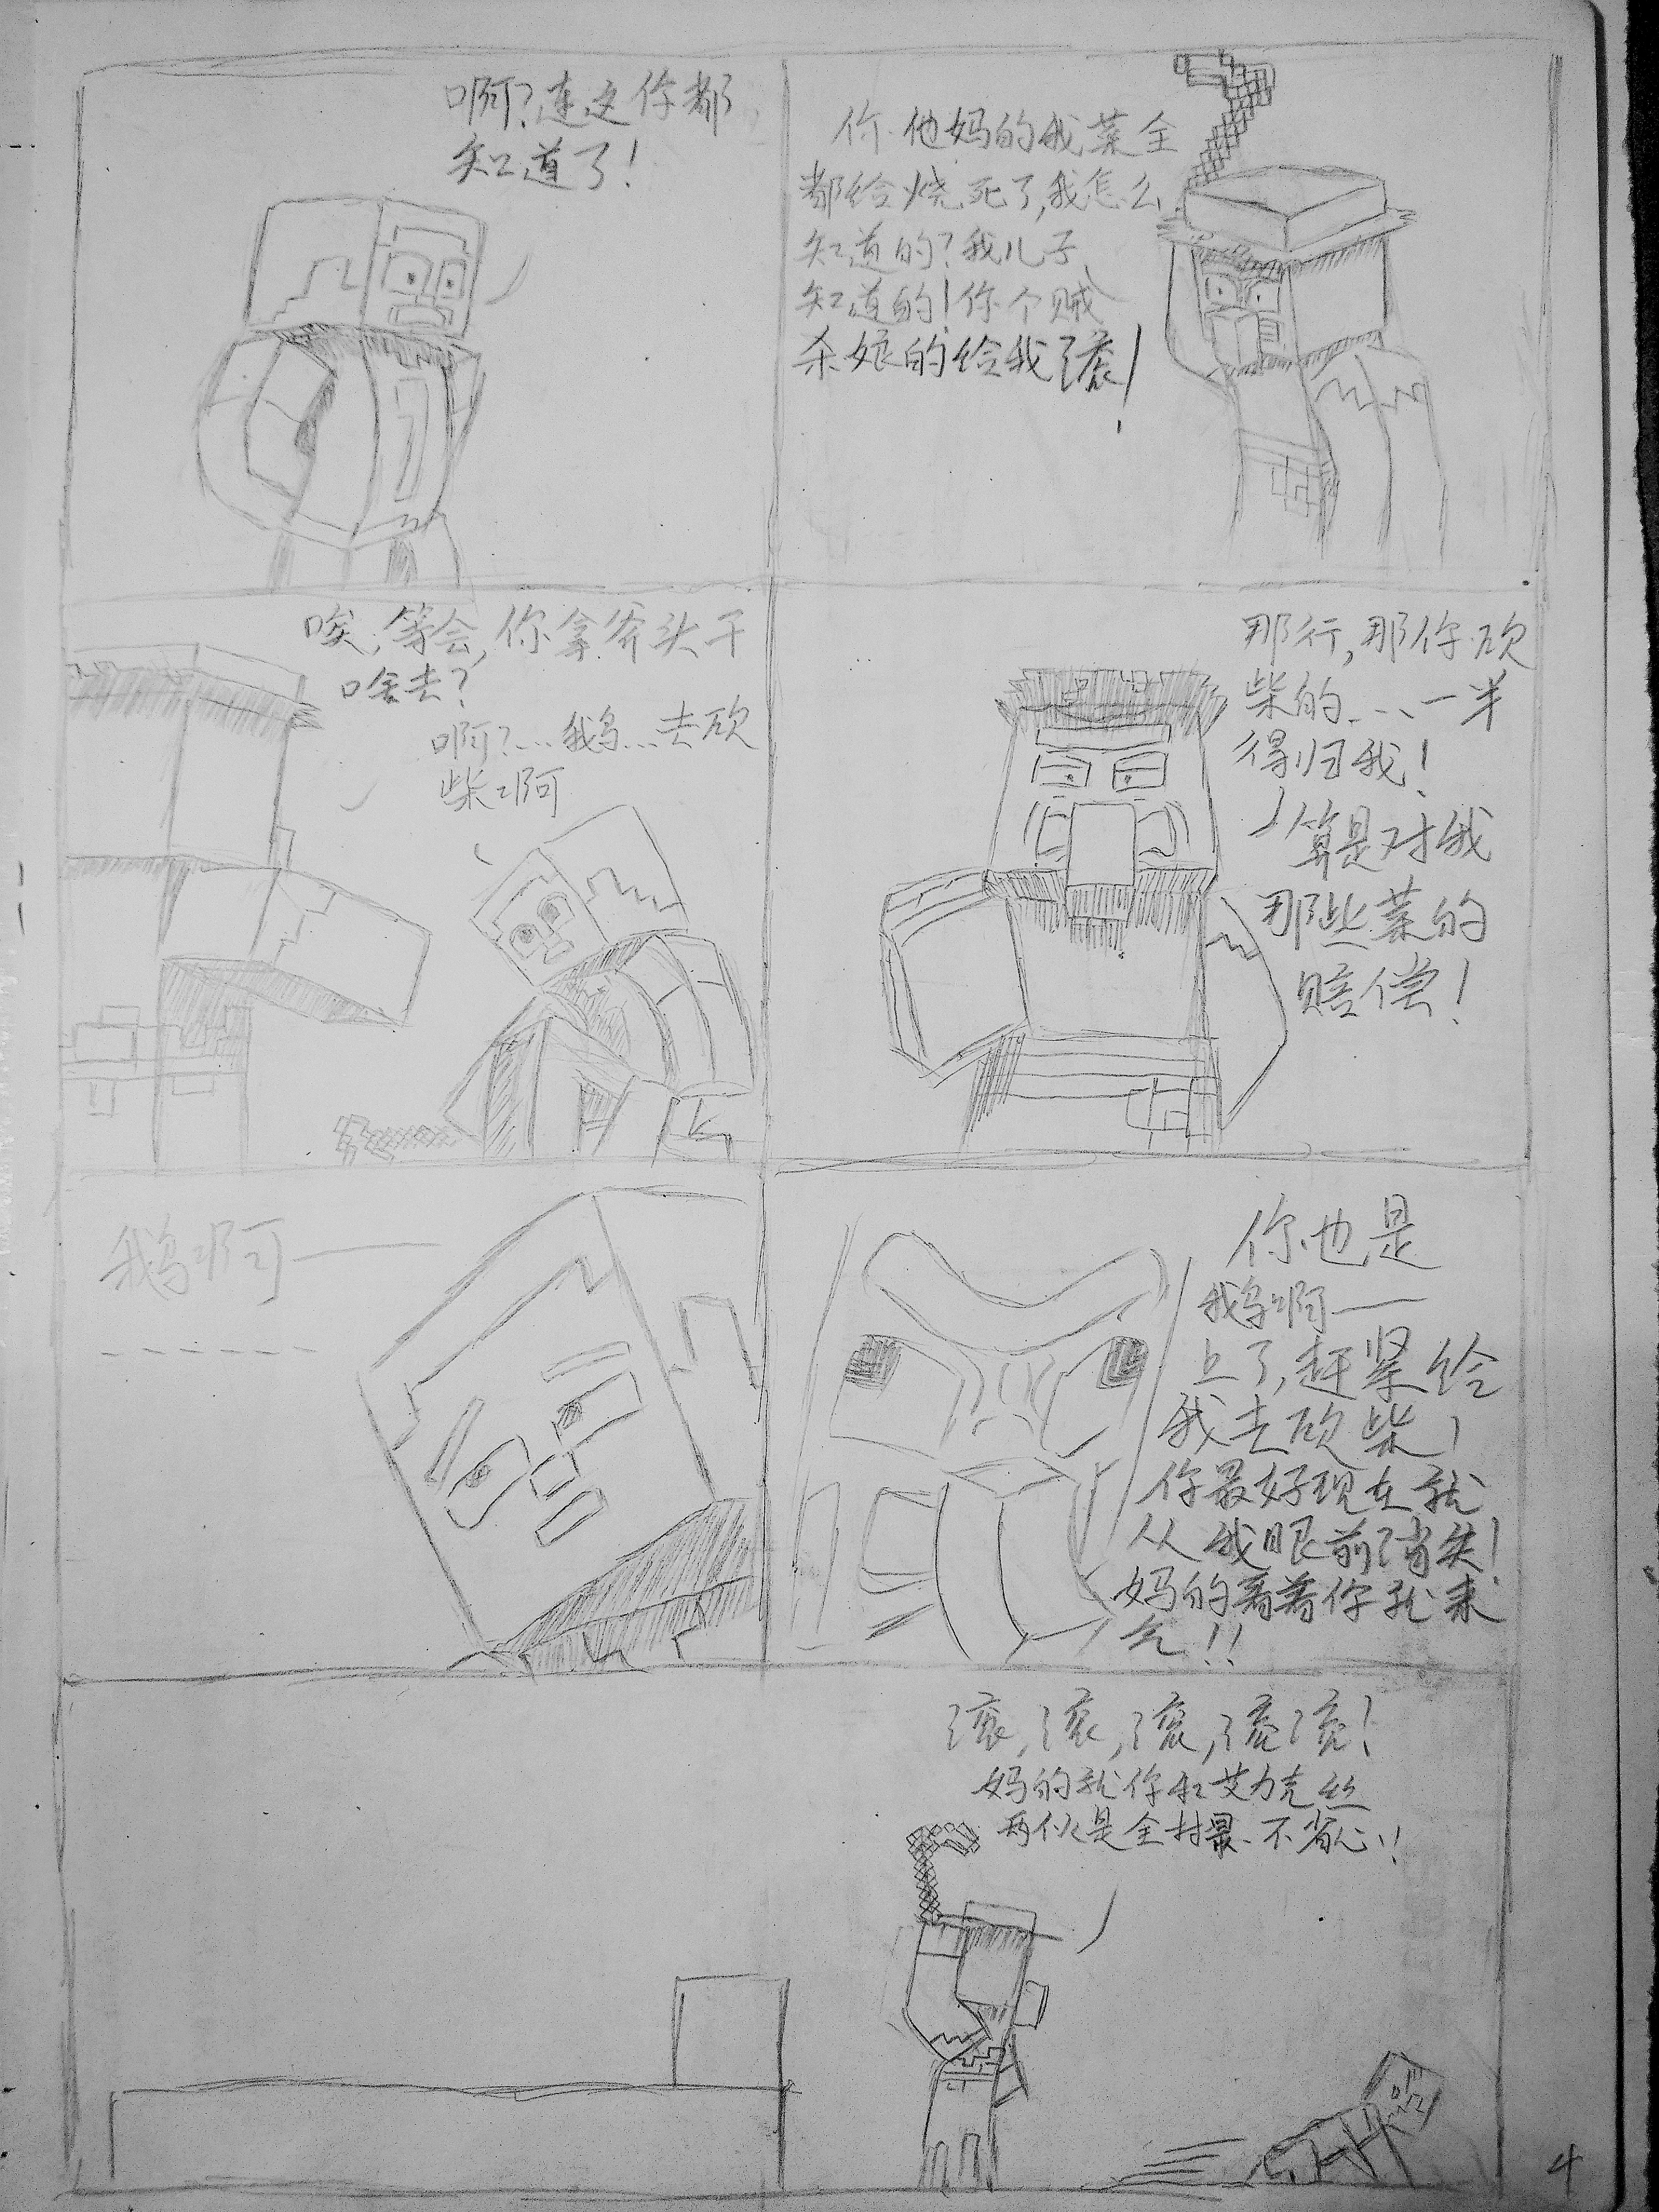 啊?连这你都
知道了!
你他妈的我菜全
都给烧死了,我怎么
知道的?我儿子
知道的!你个贼
杀娘的给我滚!
唉,等会,你拿斧头干
啥去?
啊?...鹅...去砍
柴啊
那行,那你砍
柴的...一半
得归我!
算是对我
那些菜的
赔偿!
鹅啊——
------
你也是
鹅啊——
上了,赶紧给
我去砍柴,
你最好现在就
从我眼前消失!
妈的看着你就来
气!!
滚,滚,滚,滚滚!
妈的就你和艾力克丝
两个是全村最不省心!!
4